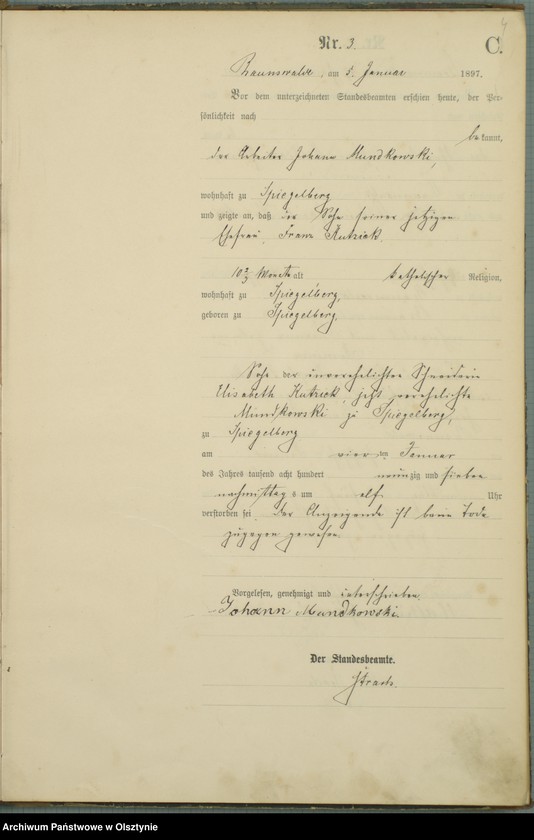 4
Nr. 3.
C.
Braunswalde, am 5. Januar 1897.
Vor dem unterzeichneten Standesbeamten erschien heute, der Per-
sönlichkeit nach
bekannt,
der Arbeiter Johann Mundkowski,
wohnhaft zu Spiegelberg
und zeigte an, daß der Sohn seiner jetzigen
Ehefrau, Franz Kutziek
10 2/3 Monate alt katholischer Religion,
wohnhaft zu Spiegelberg,
geboren zu Spiegelberg,
Sohn der unverehelichten Schneiderin
Elisabeth Kutziek, jetzt verehelichte
Mundkowski zu Spiegelberg,
zu Spiegelberg
am vierten Januar
des Jahres tausend acht hundert neunzig und sieben
nachmittags um elf Uhr
verstorben sei. Der Anzeigende ist beim Tode
zugegen gewesen.
Vorgelesen, genehmigt und unterschrieben.
Johann Mundkowski.
Der Standesbeamte.
Archiwum Państwowe w Olsztynie